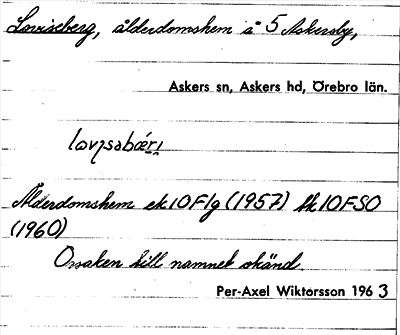 Loviseberg, ålderdomshem å 5 Askersby,
Askers sn, Askers hd, Örebro län.
lovɩsəbær̩ɩ
Ålderdomshem ek10F1g (1957) tk10FSO
(1960)
Orsaken till namnet okänd.
Per-Axel Wiktorsson 1963